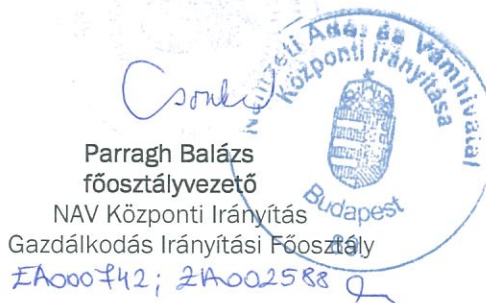 Nemzeti Adó- és Vámhivatal
Központi Irányítása
Budapest
Parragh Balázs
főosztályvezető
NAV Központi Irányítás
Gazdálkodás Irányítási Főosztály
EA000742; ZIA002588